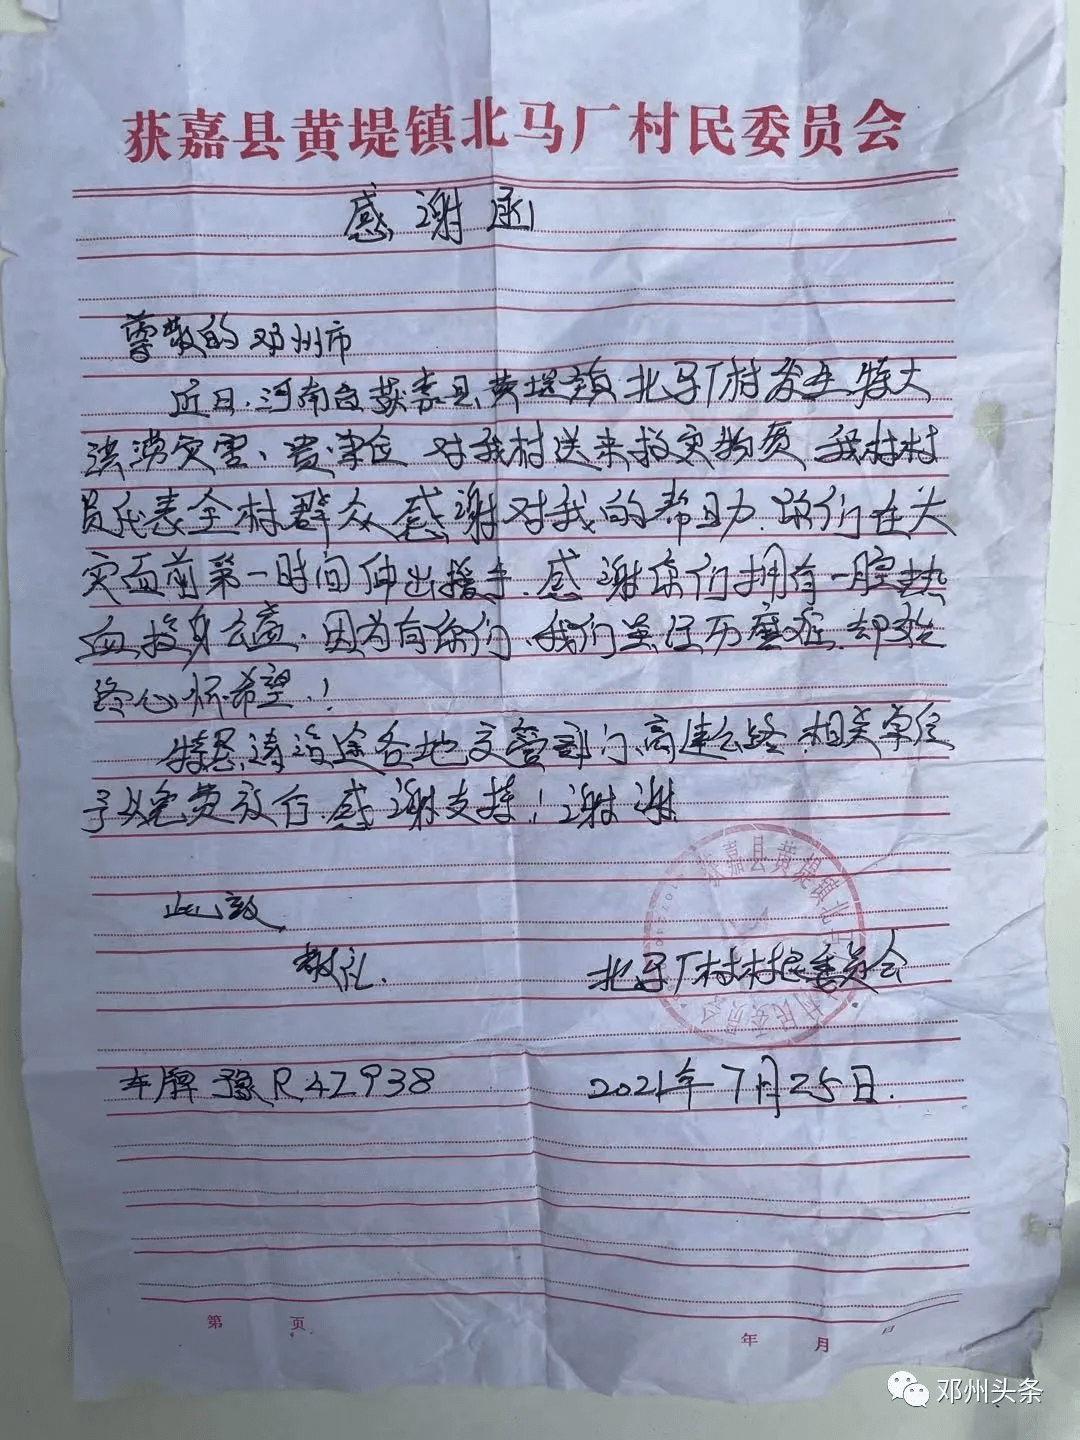 获嘉县黄堤镇北马厂村民委员会
感谢函
尊敬的邓州市
近日,河南省获嘉县黄堤镇北马厂村发生特大
洪涝灾害、贵单位对我村送来救灾物质 我村村
员代表全村群众感谢对我的帮助.你们在大
灾面前第一时间伸出援手.感谢你们拥有一腔热
血投身公益、因为有你们、我们虽经历磨症.却始
终心怀希望.!
特恳请沿途各地交管部门、高速公路.相关单位
予以免费放行.感谢支持!谢谢
此致
敬礼.
北马厂村村民委员会
车牌 豫R42938
2021年7月25日.
获嘉县黄堤镇北马厂村民委员会
第 页
年 月 日
邓州头条